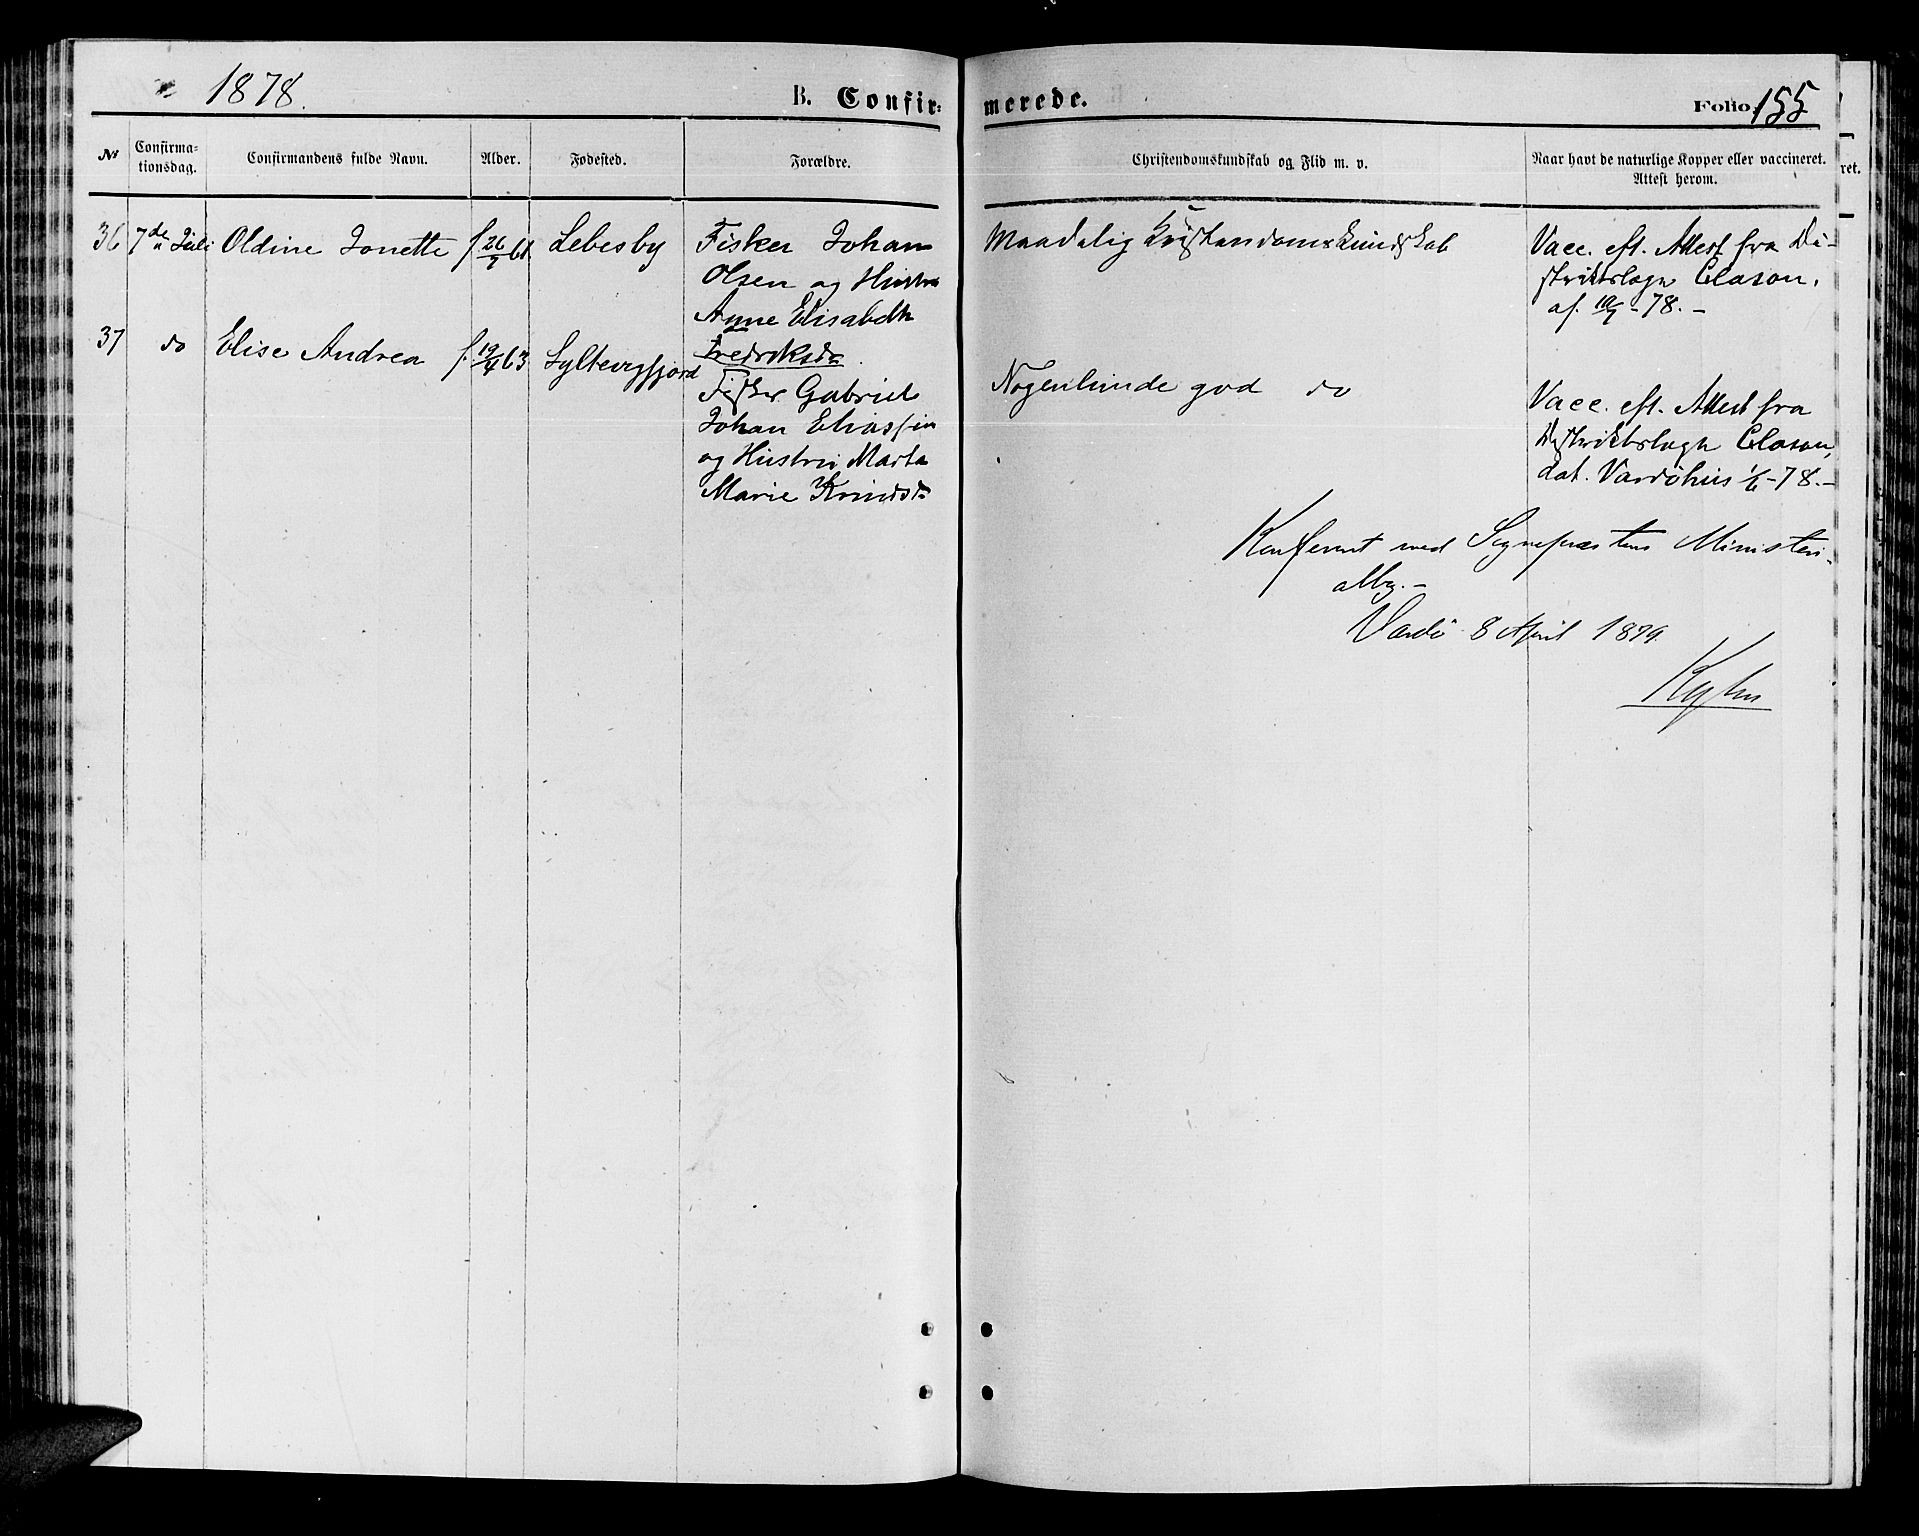 1878.
B. Confir-
merede.
Folio 155
No
Confirma-
tionsdag.
Confirmandens fulde Navn.
Alder.
Fødested.
Forældre.
Christendomskundskab og Flid m. v.
Naar havt de naturlige Kopper eller vaccineret.
Attest herom.
ret.
36 7de Juli Oldine Jonette f. 26/7 61 Lebesby
Fisker Johan
Olsen og Hustru
Anne Elisabeth
Fredriksdr.
Maadelig Kristendomskundskab
Vacc. eft. Attest fra Di-
striktslæge Clason,
af. -78.-
37 do Elise Andrea f. 19/4 63 Syltevigfjord
Fisker Gabriel
Johan Eliassen
og Hustru Marta
Marie
Nogenlunde god do
Vacc. eft. Attest fra
Distriktslæge Clason,
dat. Vardøhus 1/6 -78.-
Konfereret med Sognepræstens Ministeri-
albg.-
Vardø 8 April 1879.